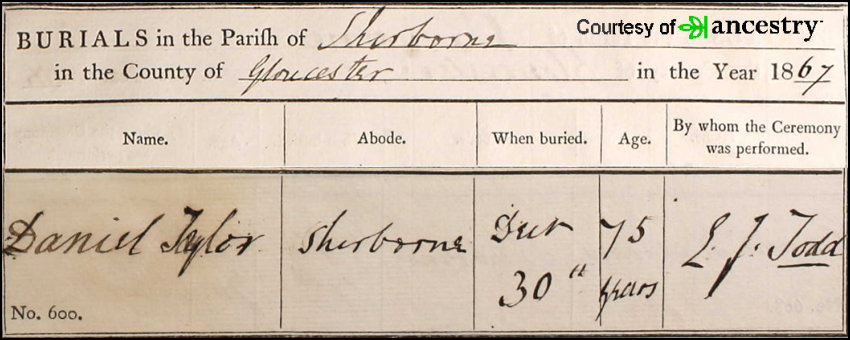 Courtesy of ancestry
BURIALS in the Pariſh of Sherborne
in the County of Gloucester in the Year 1867
Name. Abode. When buried. Age. By whom the Ceremony
was performed.
Daniel Taylor Sherborne 75 Todd
30th years
No. 600.